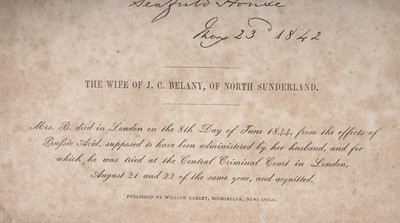 Seafield House
May 23d 1842
THE WIFE OF J. C. BELANY, OF NORTH SUNDERLAND.
Mrs. B. died in London on the 8th Day of June 1844, from the effects of
Prussic Acid, supposed to have been administered by her husband, and for
which he was tried at the Central Criminal Court in London,
August 21 and 22 of the same year, and acquitted.
PUBLISHED BY WILLIAM GARRET, BOOKSELLER, NEWCASTLE.